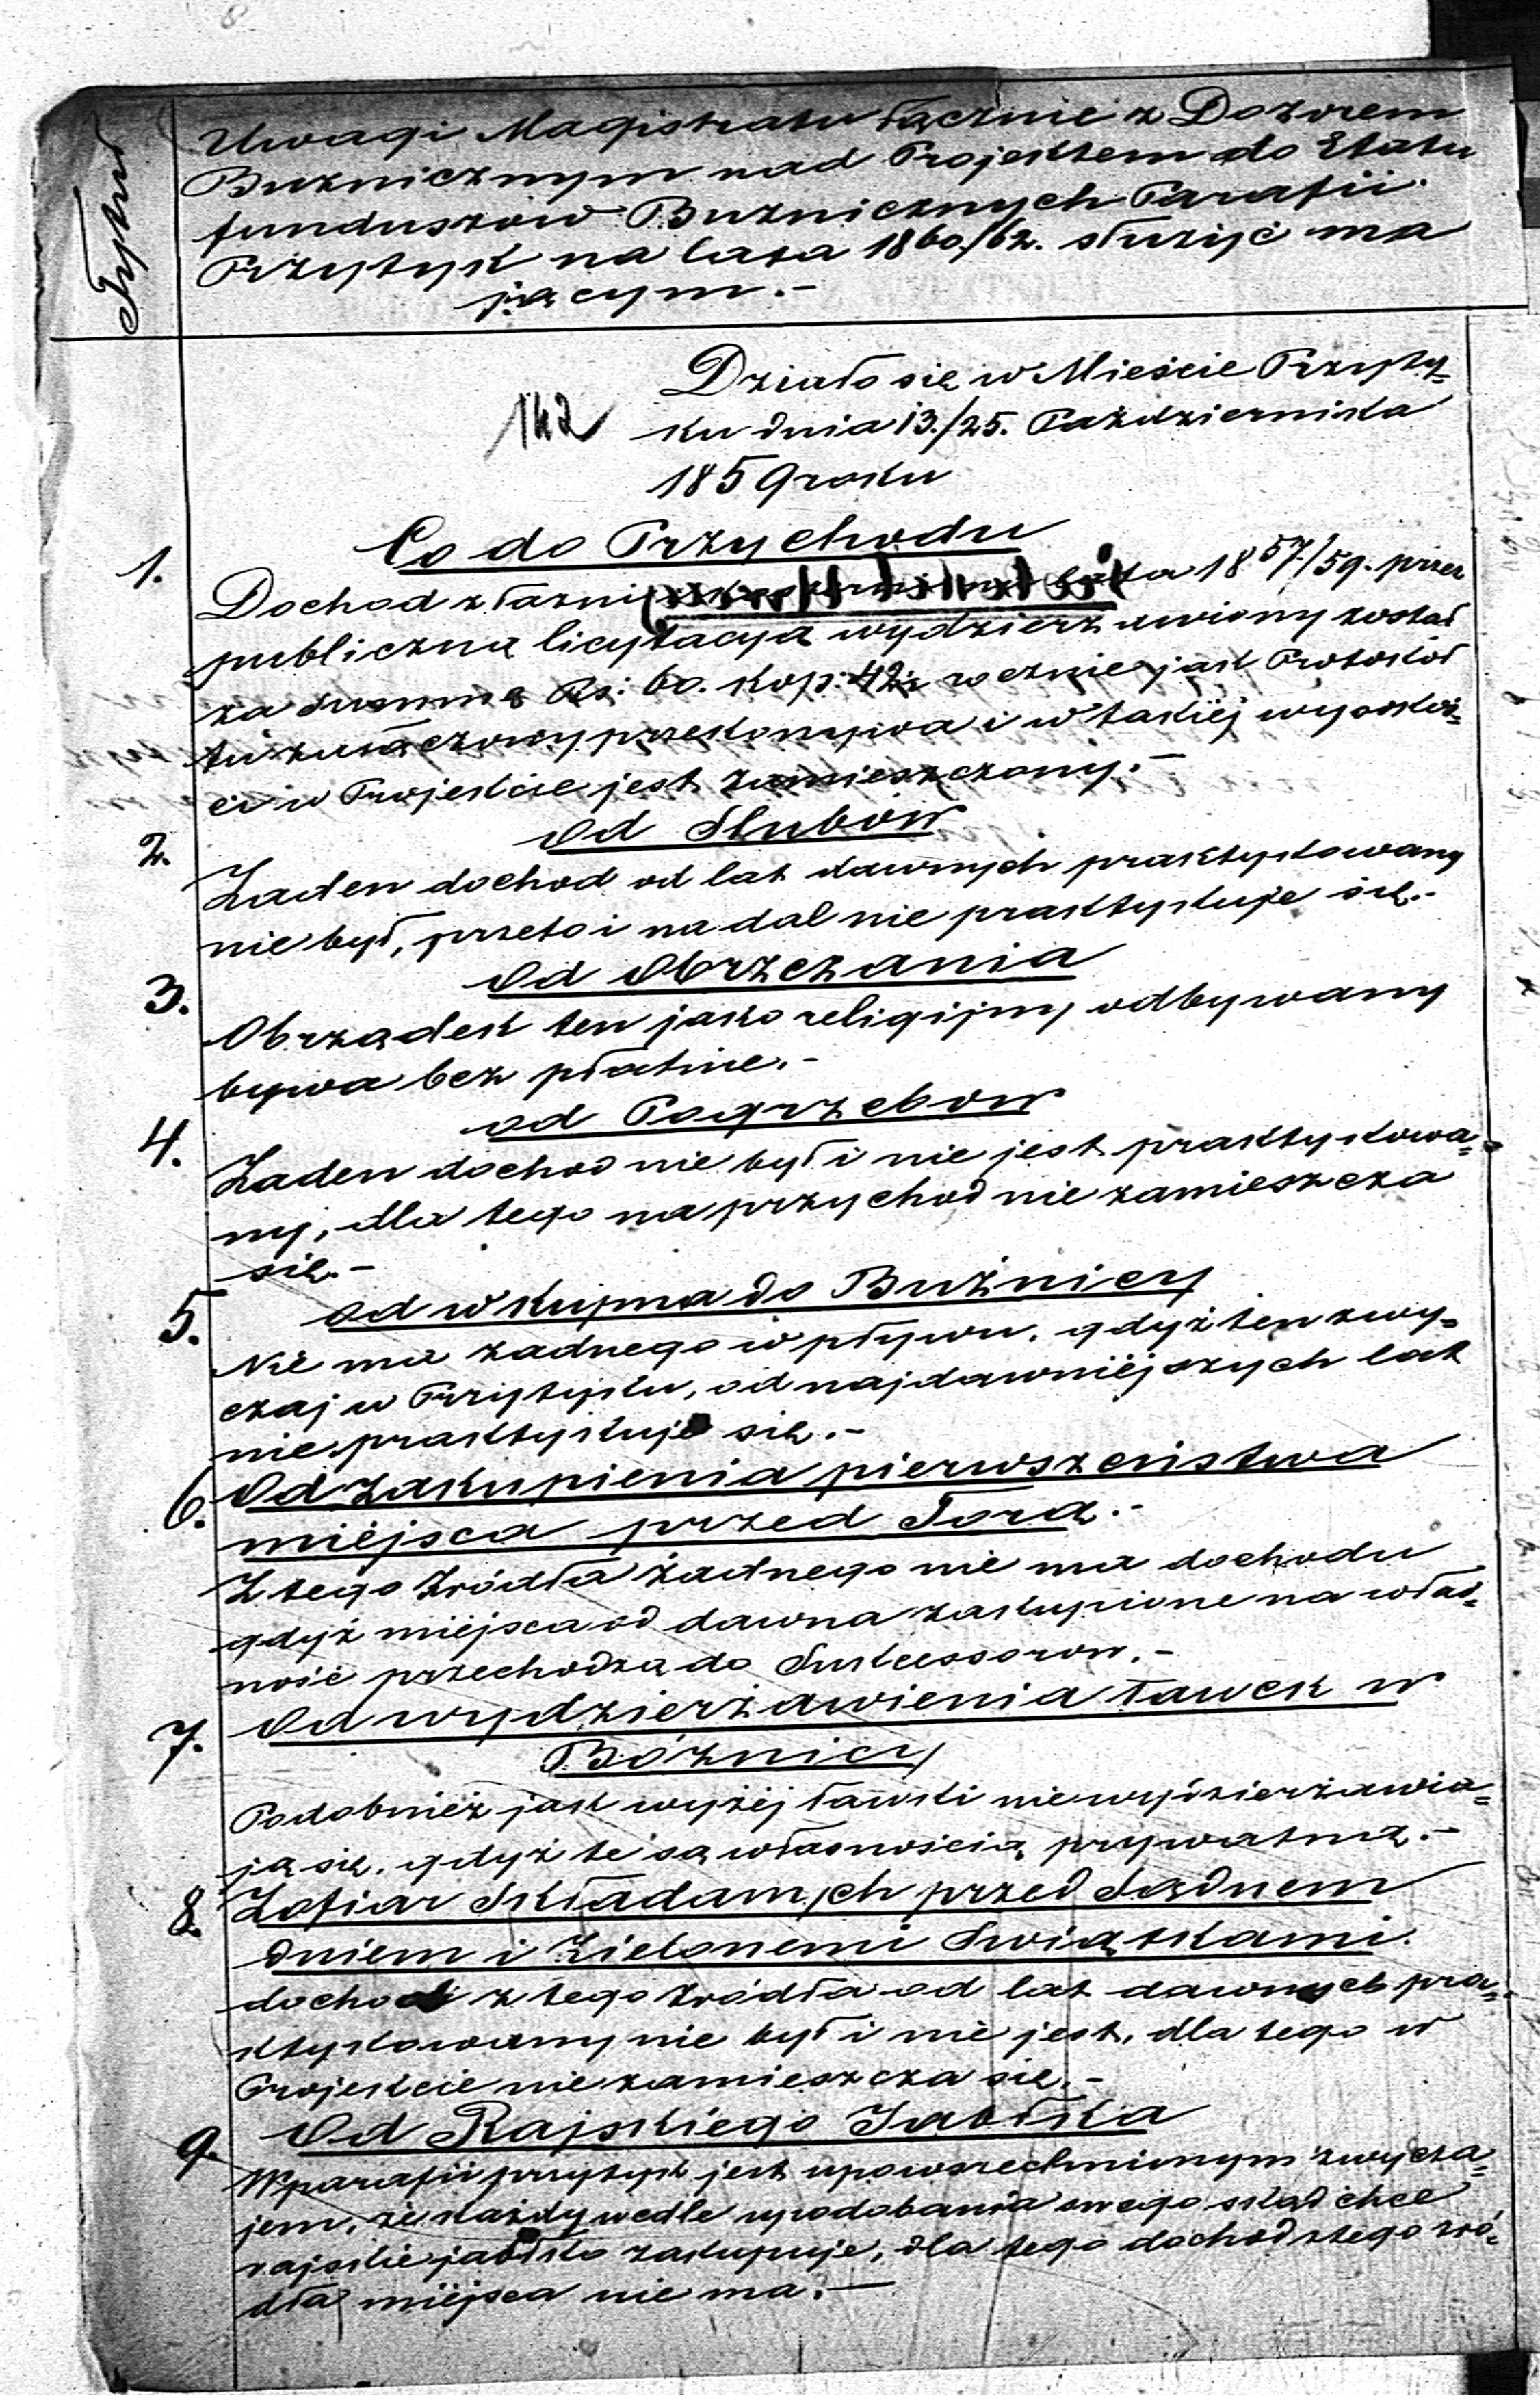 Tytuł
Uwagi Magistratu łącznie z Dozorem
Bużnicznym nad Projektem do Etatu
funduszów Bużnicznych Parafii
Przytyk na lata 1860/62. służyć ma
jącym.-
Działo się w Mieście Przyty=
ku dnia 13./25. Października
1859 roku
142
Co do Przychodu
1.
Dochod z łazni lata 1857/59. przez
publiczną licytacyą wydzierzawiony został
za summę Rs: 60. kop: 42 rocznie jak Protokół
tu załączowy przekonywa i w takiéj wysokoś=
ci w Projekcie jest zamieszczony.-
Od Slubów
2.
Zaden dochod od lat dawnych praktykowany
nie był, przeto i nadal nie praktykuje się.-
Od Obrzezania
3.
Obrządek ten jako religijny odbywany
bywa bez płatnie.-
od Pogrzebow
4.
Zaden dochod nie był i nie jest praktykowa=
ny, dla tego na przychod nie zamieszcza
się.-
od wkupna do Bużnicy
5.
Nie ma zadnego wpływu, gdyż ten zwy=
czaj w Przytyku, od najdawniéjszych lat
nie praktykuje się.-
6.
Od zakupienia pierwszeństwa
miéjsca przed Torą.-
Z tego źródła żadnego nie ma dochodu
gdyż miéjsca od dawna zakupione na włas=
ność przechodzą do Sukcessorow.-
7.
Od wydzierżawienia ławek w
Bóżnicy
Podobnież jak wyżéj ławki nie wydzierżawia=
ją się, gdyż te są własnością prywatną.-
8.
Z ofiar Składanych przed Sądnem
dniem i Zielonemi Swiątkami.
dochod z tego źródła od lat dawnych pra=
ktykowany nie był i nie jest, dla tego w
Projekcie nie zamieszcza się.-
9
Od Rajskiego Jabłka
W parafii przytyk jest upowszechnionym zwycza=
jem, że każdy wedle upodobania swego skąd chce
rajskie jabłko zakupuje, dla tego dochod z tego źró=
dła miéjsca nie ma.-